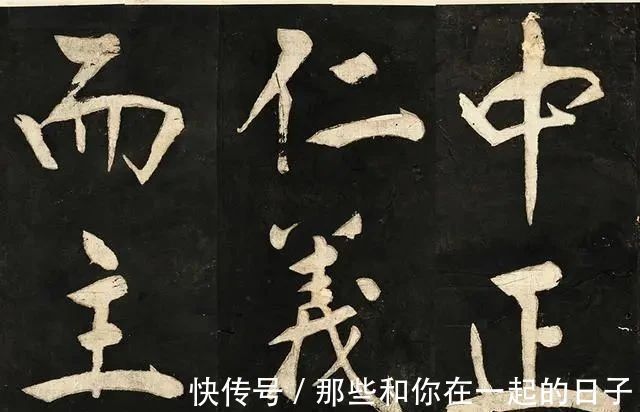 中正
仁義
而主
快传号 / 那些和你在一起的日子